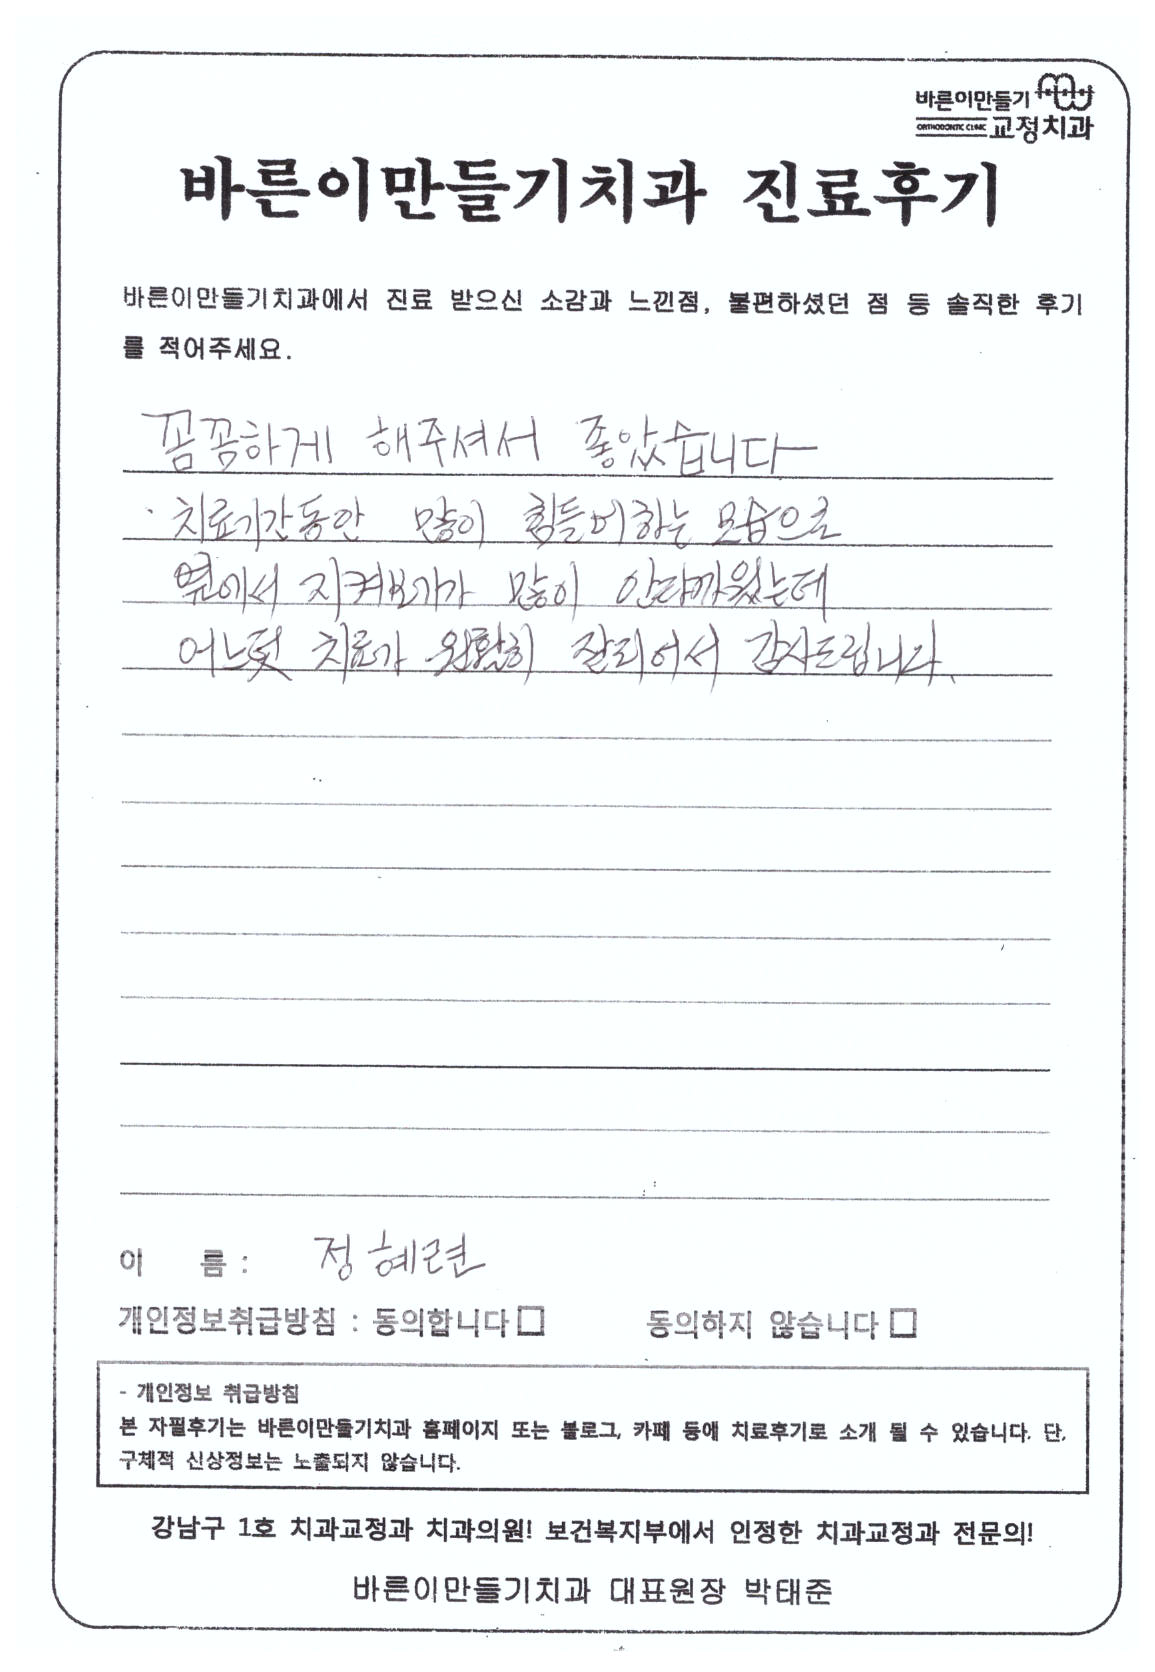 바른이만들기
ORTHODONTIC CLINIC 교정치과
바른이만들기치과 진료후기
바른이만들기치과에서 진료 받으신 소감과 느낀점, 불편하셨던 점 등 솔직한 후기
를 적어주세요.
꼼꼼하게 해주셔서 좋았습니다
치료기간동안 많이 힘들어하는 모습으로
옆에서 지켜보기가 많이 안타까웠는데
어느덧 치료가 원활히 잘되어서 감사드립니다.
이 름 : 정혜련
개인정보취급방침 : 동의합니다□ 동의하지 않습니다□
- 개인정보 취급방침
본 자필후기는 바른이만들기치과 홈페이지 또는 블로그, 카페 등에 치료후기로 소개 될 수 있습니다. 단,
구체적 신상정보는 노출되지 않습니다.
강남구 1호 치과교정과 치과의원! 보건복지부에서 인정한 치과교정과 전문의!
바른이만들기치과 대표원장 박태준